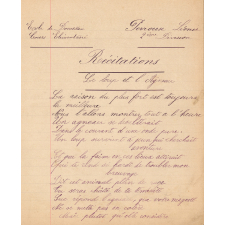 Récitations
Le loup et l'Agneau
La raison du plus fort est toujours
la meilleure
Nous l'allons montrer tout à l'heure
Un agneau se désaltérait
Dans le courant d'une onde pure
Un loup survient à jeun qui cherchait
aventure
Et que la faim en ces lieux attirait
Qui te rend si hardi de troubler mon
breuvage
Dit cet animal plein de rage
Tu seras châtié de ta témérité
Sire répond l'agneau, que votre majesté
ne se mette pas en colère
Mais plutôt qu'elle considère